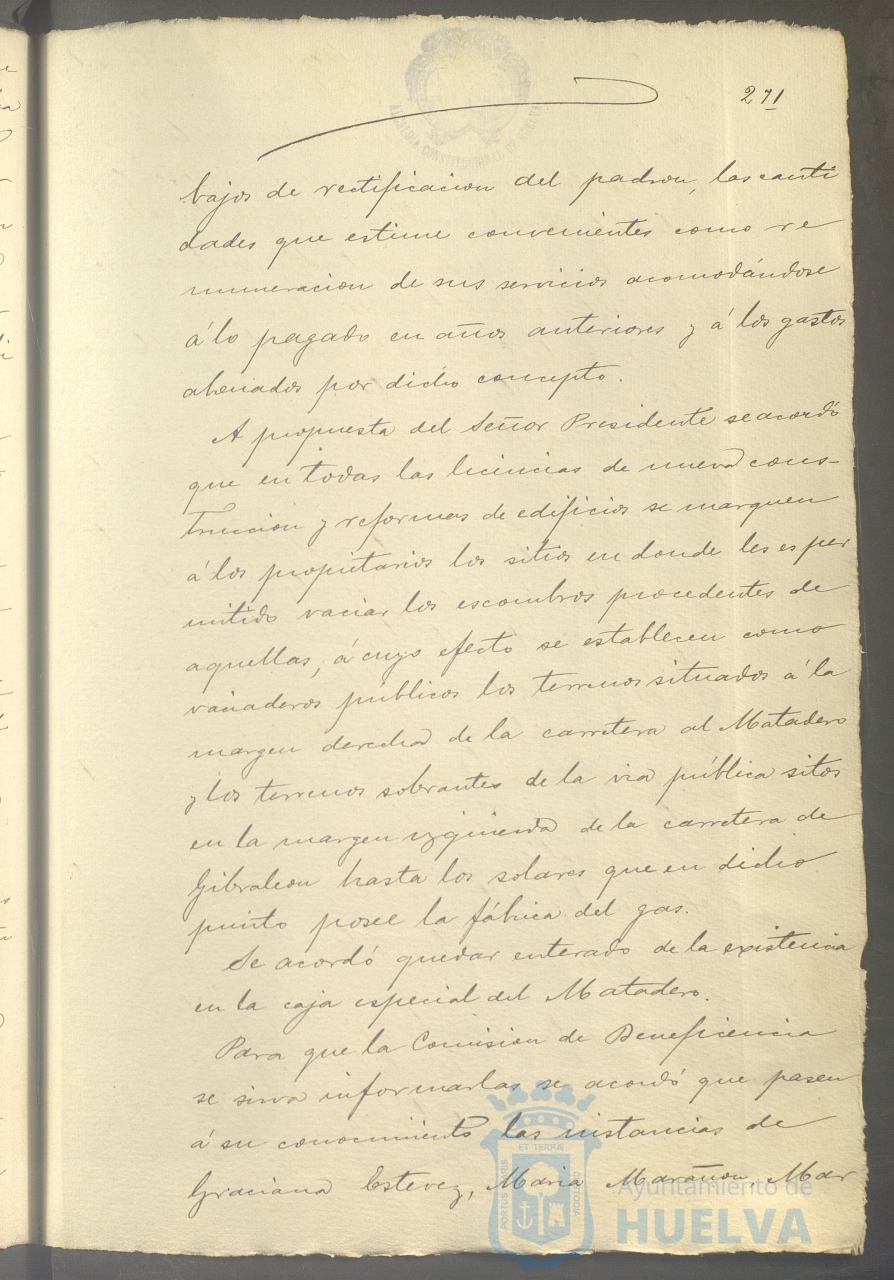 271
ALCALDIA CONSTITUCIONAL DE
bajos de rectificacion del padron, las canti
dades que estime convenientes como re
muneracion de sus servicios acomodándose
á lo pagado en años anteriores y á los gastos
abonados por dicho concepto.
A propuesta del Señor Presidente se acordó
que en todas las licincias de nueva cons-
truccion y reformas de edificios se marquen
á los propietarios los sitios en donde les es per
mitido vaciar los escombros procedentes de
aquellas, á cuyo efecto se establecen como
vaciaderos públicos los terrenos situados á la
margen derecha de la carretera al Matadero
y los terrenos sobrantes de la via pública sitos
en la margen izquierda de la carretera de
Gibraleon hasta los solares que en dicho
punto posee la fábrica del gas.
Se acordó quedar enterado de la existencia
en la caja especial del Matadero.
Para que la Comision de Beneficencia
se sirva informarlas se acordó que pasen
á su conocimiento las instancias de
Graciana Estevez, Maria Marañon, Mar
PORTUS MARIS ET TERRÆ CUSTODIA
Ayuntamiento de
HUELVA